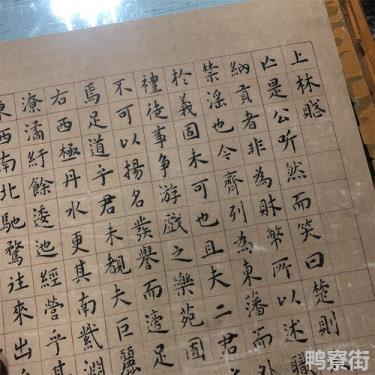 上林賦
亡是公听然而笑曰楚則
納貢者非為財幣所以述職
禁淫也今齊列為東藩而外
於義固未可也且夫二君
禮徒事爭游戲之樂苑囿
不可以揚名發譽而適足
焉足道乎君未覩夫巨麗
右西極丹水更其南紫淵
潦潏紆餘逶迤經營乎其
東西南北馳騖往來出乎
鸭寮街